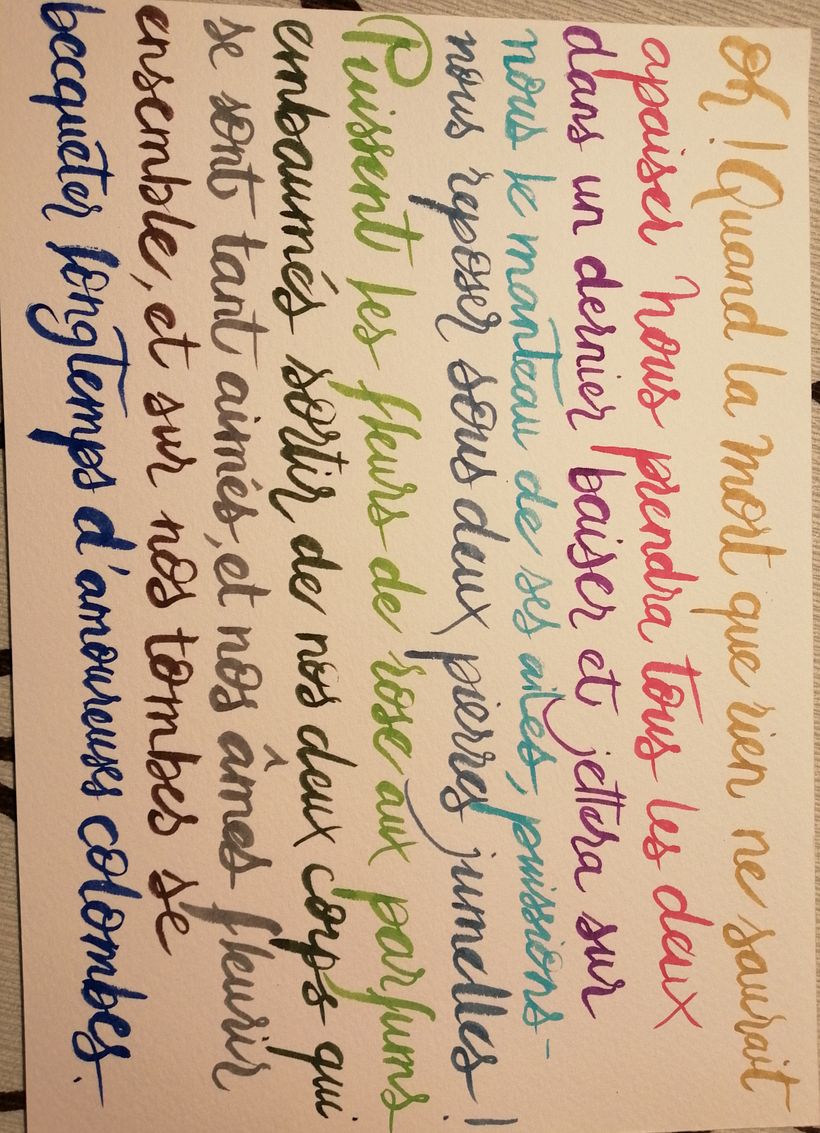 Oh ! Quand la mort que rien ne saurait
apaiser nous prendra tous les deux
dans un dernier baiser et jettera sur
nous le manteau de ses ailes, puissions-
nous reposer sous deux pierres jumelles !
Puissent les fleurs de rose aux parfums
embaumés sortir de nos deux corps qui
se sont tant aimés, et nos âmes fleurir
ensemble, et sur nos tombes se
becquêter longtemps d'amoureuses colombes.